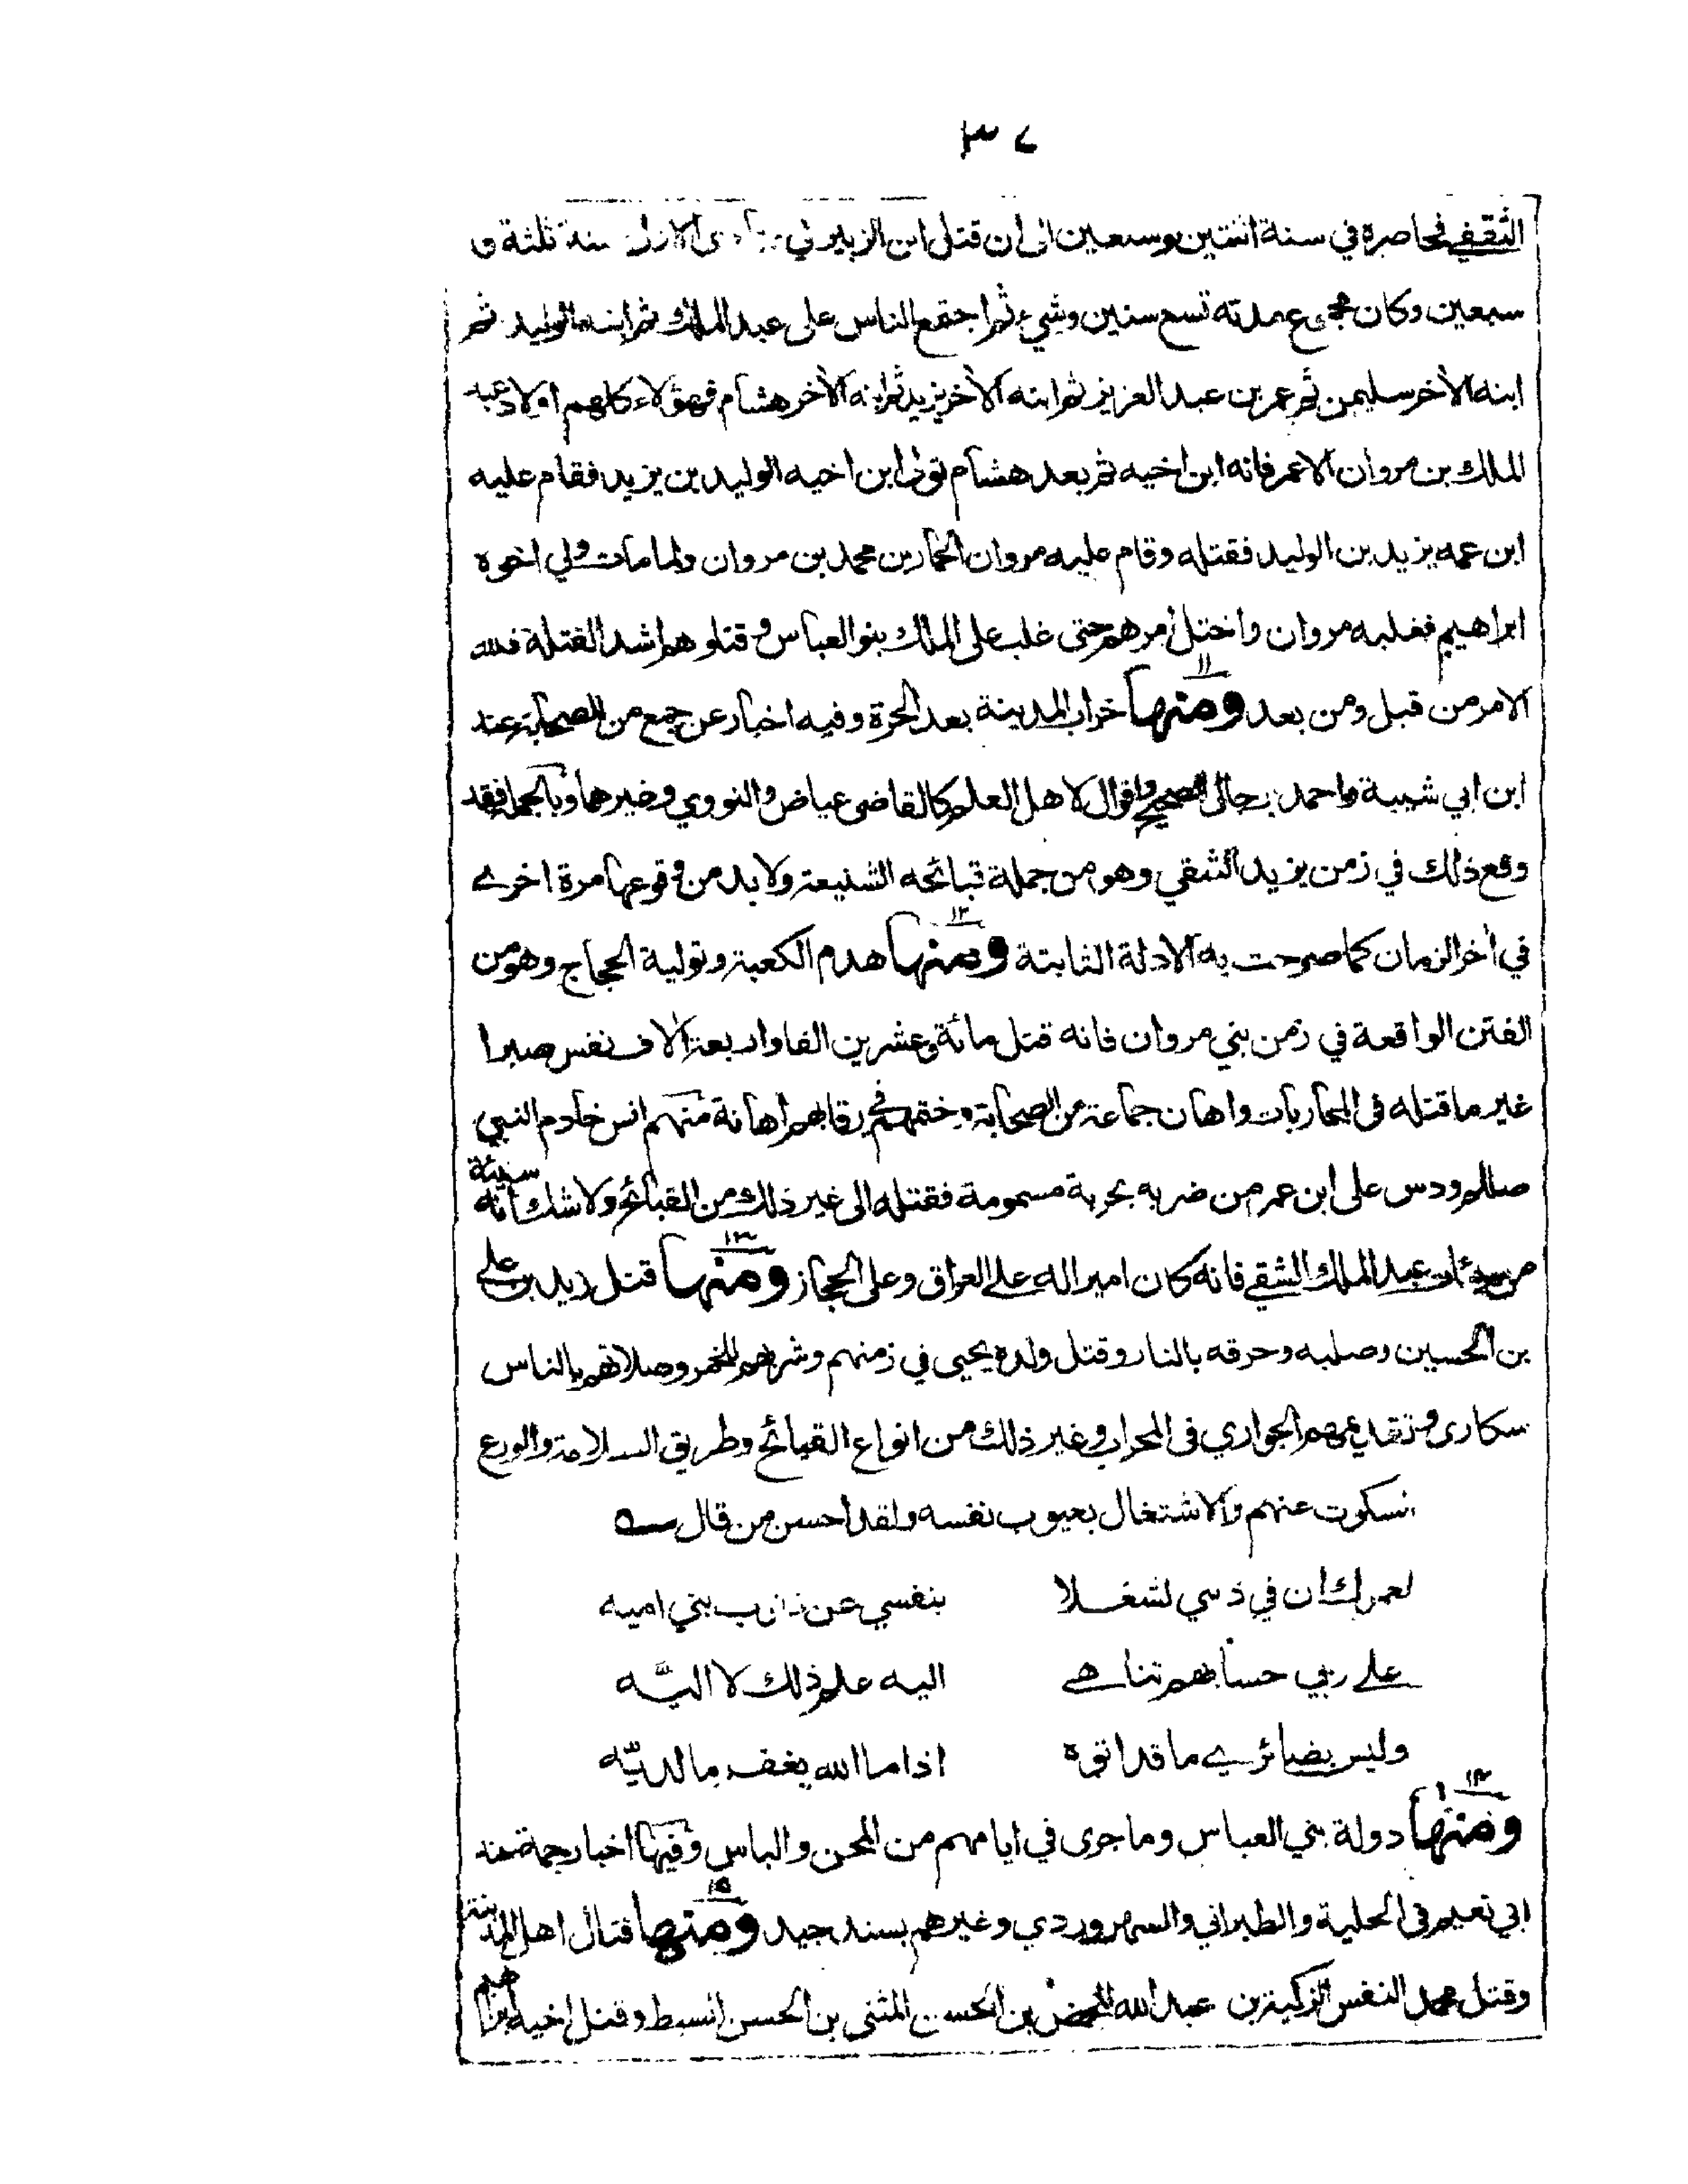 ٣٧
الثقفي فحاصره في سنة اثنتين وسبعين الى ان قتل ابن الزبير في جمادى الاولى سنة ثلثة و
سبعين وكان مجموع مدته تسع سنين وشيء ثم اجتمع الناس على عبد الملك ثم ابنه الوليد ثم
ابنه الاخر سليمن ثم عمر بن عبد العزيز ثم ابنه الاخر يزيد ثم ابنه الاخر هشام فهؤلاء كلهم اولاد عبد
الملك بن مروان الا عمر فانه ابن اخيه ثم بعد هشام تولى ابن اخيه الوليد بن يزيد فقام عليه
ابن عمه يزيد بن الوليد فقتله وقام عليه مروان الحمار بن محمد بن مروان ولما مات ولي اخوه
ابراهيم فغلبه مروان واختل امرهم حتى غلب على الملك بنو العباس و قتلوهم اشد القتلة فلله
الامر من قبل ومن بعد ومنها ١١ خراب المدينة بعد الحرة وفيه اخبار عن جمع من الصحابة عند
ابن ابي شيبة واحمد برجال الصحيح واقوال لاهل العلم كالقاضى عياض والنووي وغيرهما وبالجملة فقد
وقع ذلك في زمن يزيد الشقي وهو من جملة قبائحه الشنيعة ولا بد من وقوعها مرة اخرى
في أخر الزمان كما صرحت به الادلة الثابتة ومنها ١٢ هدم الكعبة وتولية الحجاج وهو من
الفتن الواقعة في زمن بني مروان فانه قتل مائة وعشرين الفا واربعة الاف نفس صبرا
غير ما قتله فى المحاربات واهان جماعة من الصحابة وختمهم في رقابهم اهانة منهم انس خادم النبي
صللم ودس على ابن عمر من ضربه بحربة مسمومة فقتله الى غير ذلك من القبائح ولا شك انه سيئة
من سيئات عبد الملك الشقي فانه كان اميرا له على العراق وعلى الحجاز ومنها ١٣ قتل زيد بن علي
بن الحسين وصلبه وحرقه بالنار وقتل ولده يحيى في زمنهم وشربهم للخمر وصلاتهم بالناس
سكارى وتقديمهم الجواري فى المحراب وغير ذلك من انواع القبائح وطريق السلامة والورع
السكوت عنهم والاشتغال بعيوب نفسه ولقد احسن من قال
لعمرك ان في ذنبي لشغلا بنفسي عن ذنوب بني اميه
على ربي حسابهم تناهى اليه علم ذلك لا اليّه
وليس بضائري ما قد اتوه اذا ما الله يغفر ما لديّه
ومنها ١٤ دولة بني العباس وما جرى في ايامهم من المحن والباس وفيها اخبار جمة عند
ابي نعيم فى الحلية والطبراني والسهروردي وغيرهم بسند جيد ومنها ١٥ قتال اهل المدينة
وقتل محمد النفس الزكية بن عبد الله المحض بن الحسن المثنى بن الحسن السبط وقتل اخيه ابراهيم